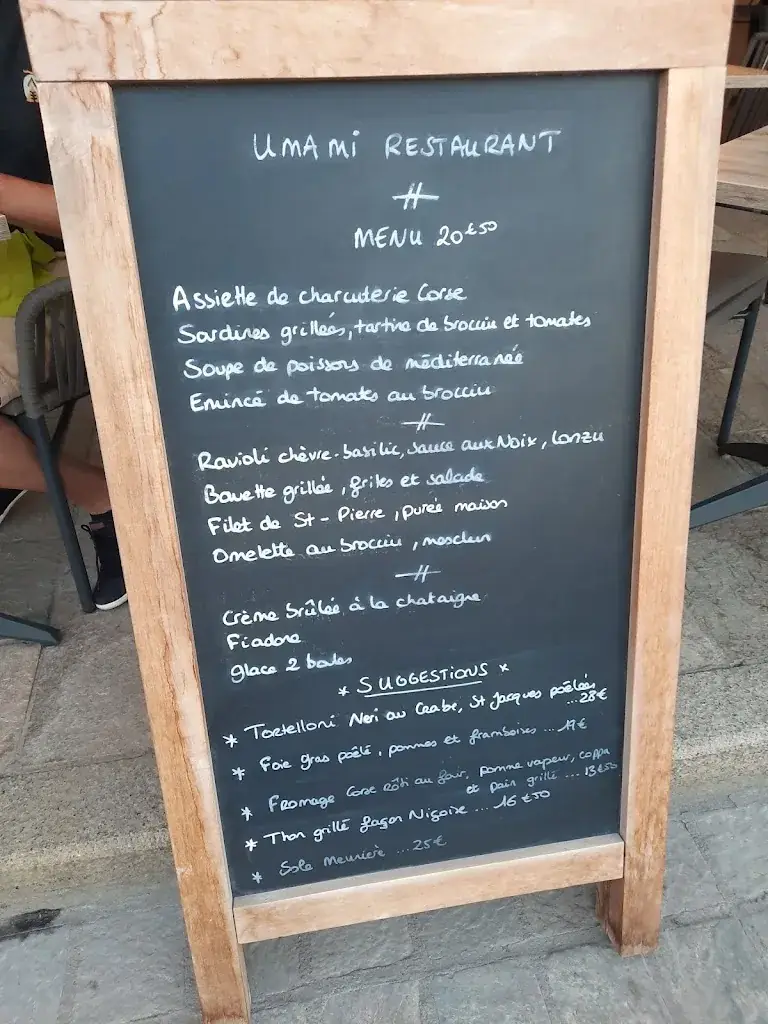 UMAMI RESTAURANT
#
MENU 20€50
Assiette de charcuterie Corse
Sardines grillées, tartine de brocciu et tomates
Soupe de poissons de méditerranée
Emincé de tomates au brocciu
#
Ravioli chèvre-basilic, sauce aux Noix, Lonzu
Bavette grillée, frites et salade
Filet de St-Pierre, purée maison
Omelette au brocciu, mesclun
#
Crème brûlée à la chataigne
Fiadone
glace 2 boules
* SUGGESTIONS *
* Tortelloni Neri au Crabe, St Jacques poêlées
...28€
* Foie gras poêlé, pommes et framboises ... 17€
* Fromage Corse rôti au four, pomme vapeur, coppa
et pain grillé ... 13€50
* Thon grillé façon Niçoise ... 16€50
* Sole Meunière ... 25€